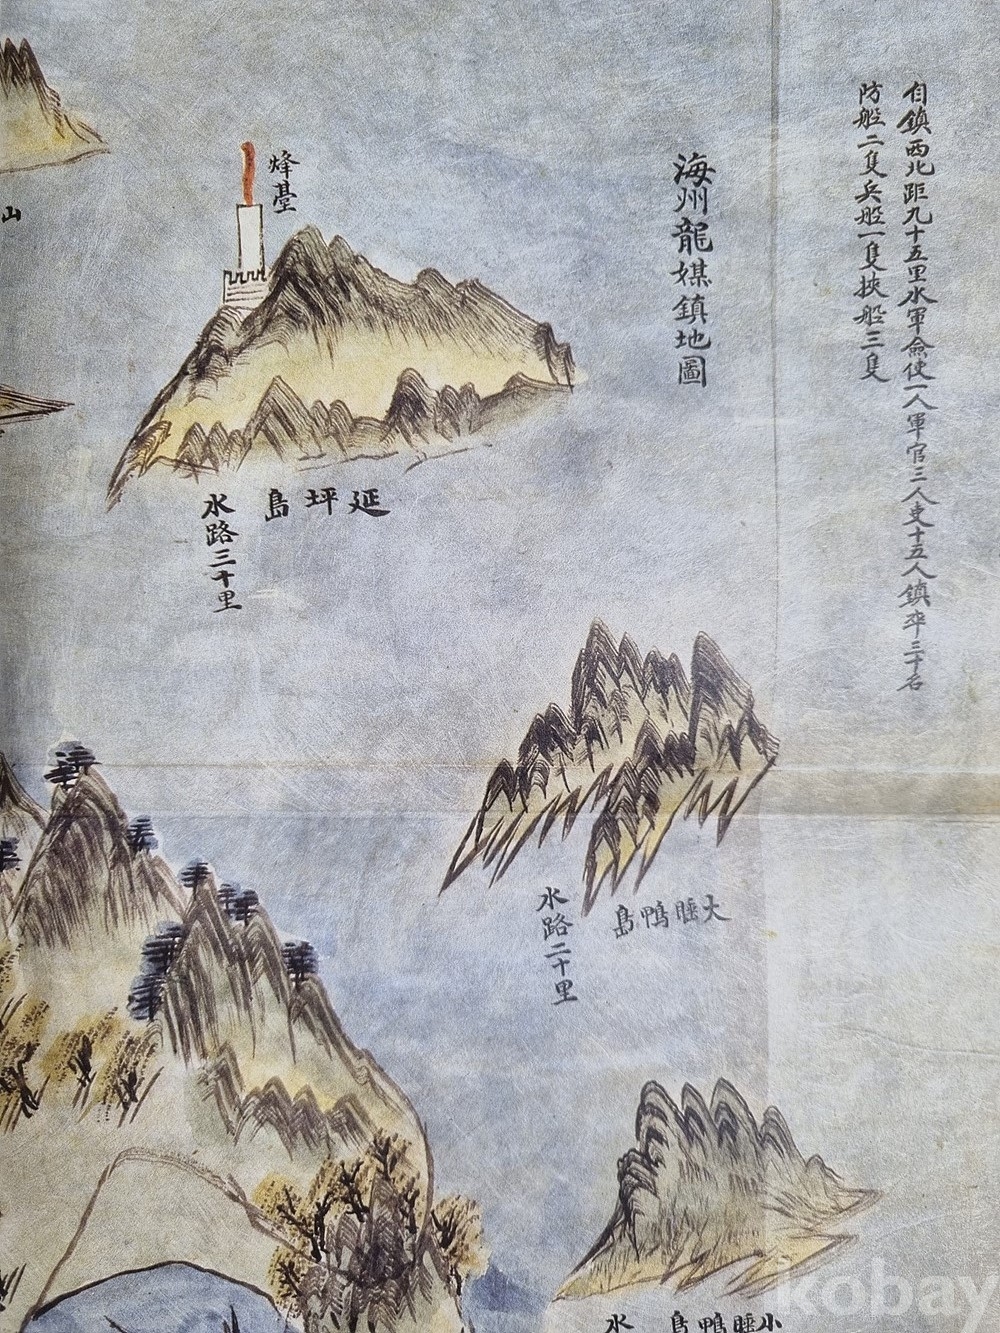 自鎭西北距九十五里水軍僉使一人軍官三人吏十五人鎭卒三十名
防船二隻兵船一隻挾船三隻
海州龍媒鎭地圖
烽臺
延坪島
水路三十里
山
大睡鴨島
水路二十里
小睡鴨島
水
kobay